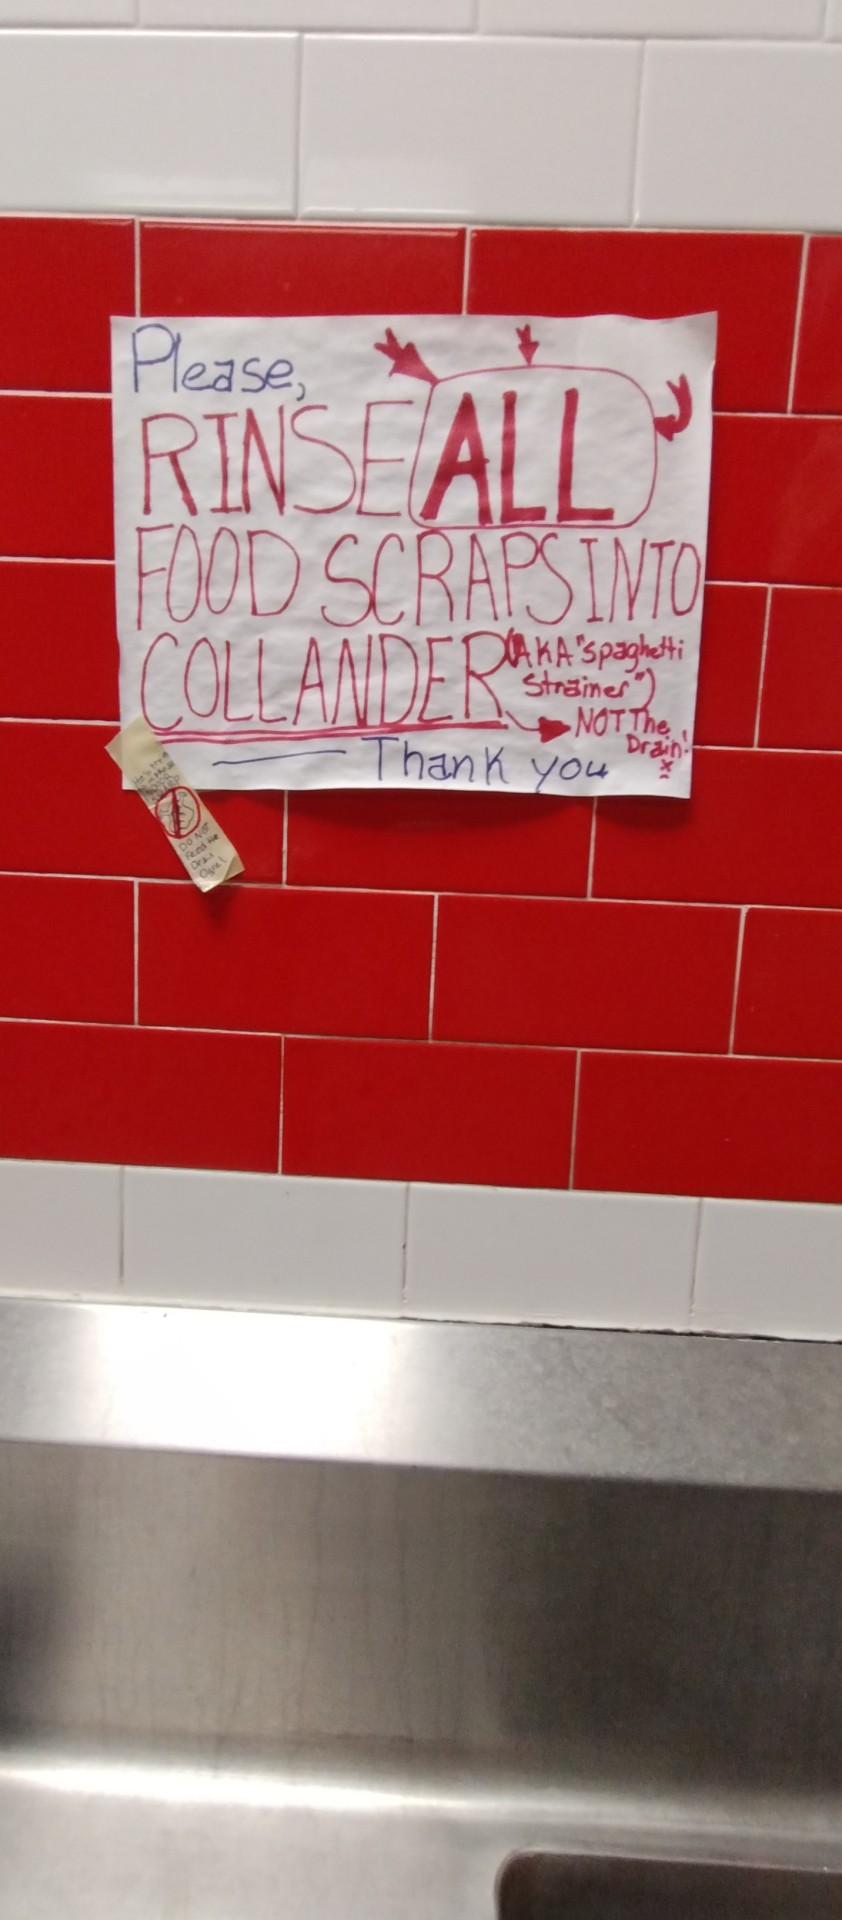 Please,
RINSE ALL
FOOD SCRAPS INTO
COLLANDER (AKA "spaghetti
Strainer")
NOT The
Drain!
Thank you
DO NOT
Feed the
Drain
Ogre!